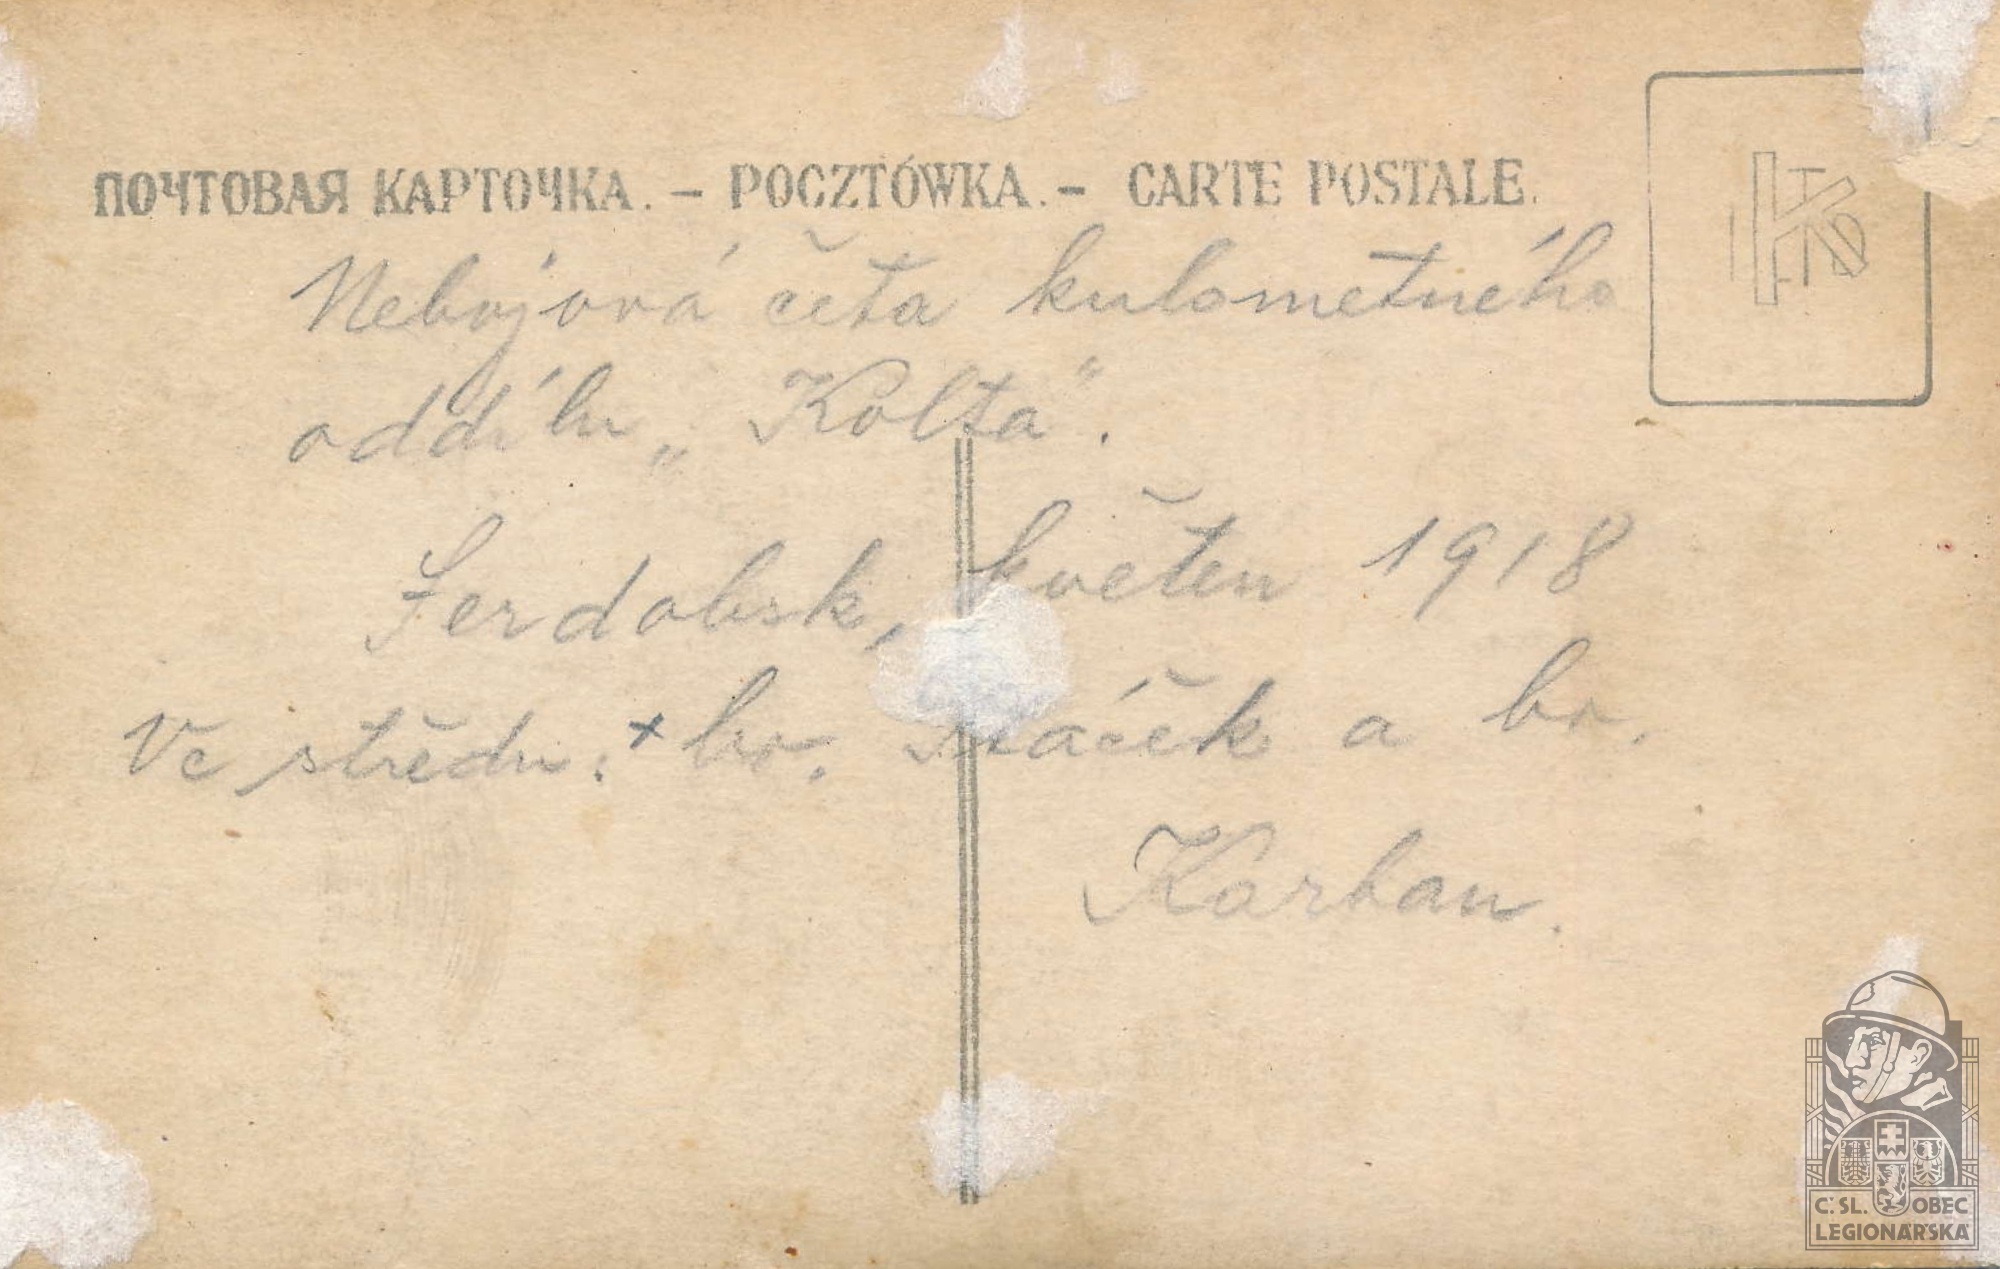 ПОЧТОВАЯ КАРТОЧКА. – POCZTÓWKA. – CARTE POSTALE.
Nebojová četa kulometného
oddílu „Kolta".
Serdobsk, květen 1918
Ve středu: + br. a br.
Karban.
Č. SL. OBEC
LEGIONÁŘSKÁ